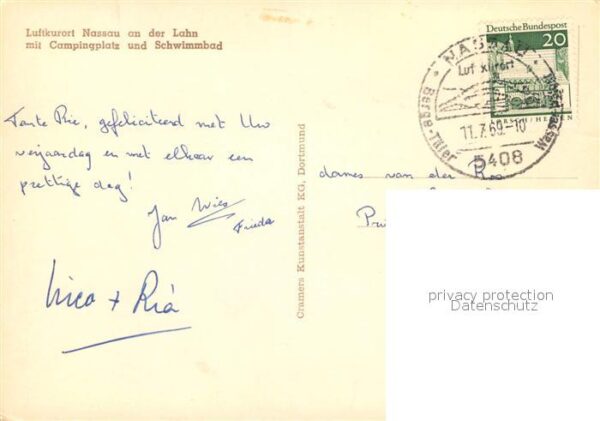 Luftkurort Nassau an der Lahn
mit Campingplatz und Schwimmbad
Deutsche Bundespost
20
LORSCH/HESSEN
NASSAU
Luftkurort
Berge-Täler
Wälder-Wasser
11.7.69.-10
5408
Tante Rie, gefeliciteerd met Uw
verjaardag en met elkaar een
prettige dag!
Jan Wies
Frieda
Nico + Ria
Cramers Kunstanstalt KG, Dortmund
dames van der
privacy protection
Datenschutz